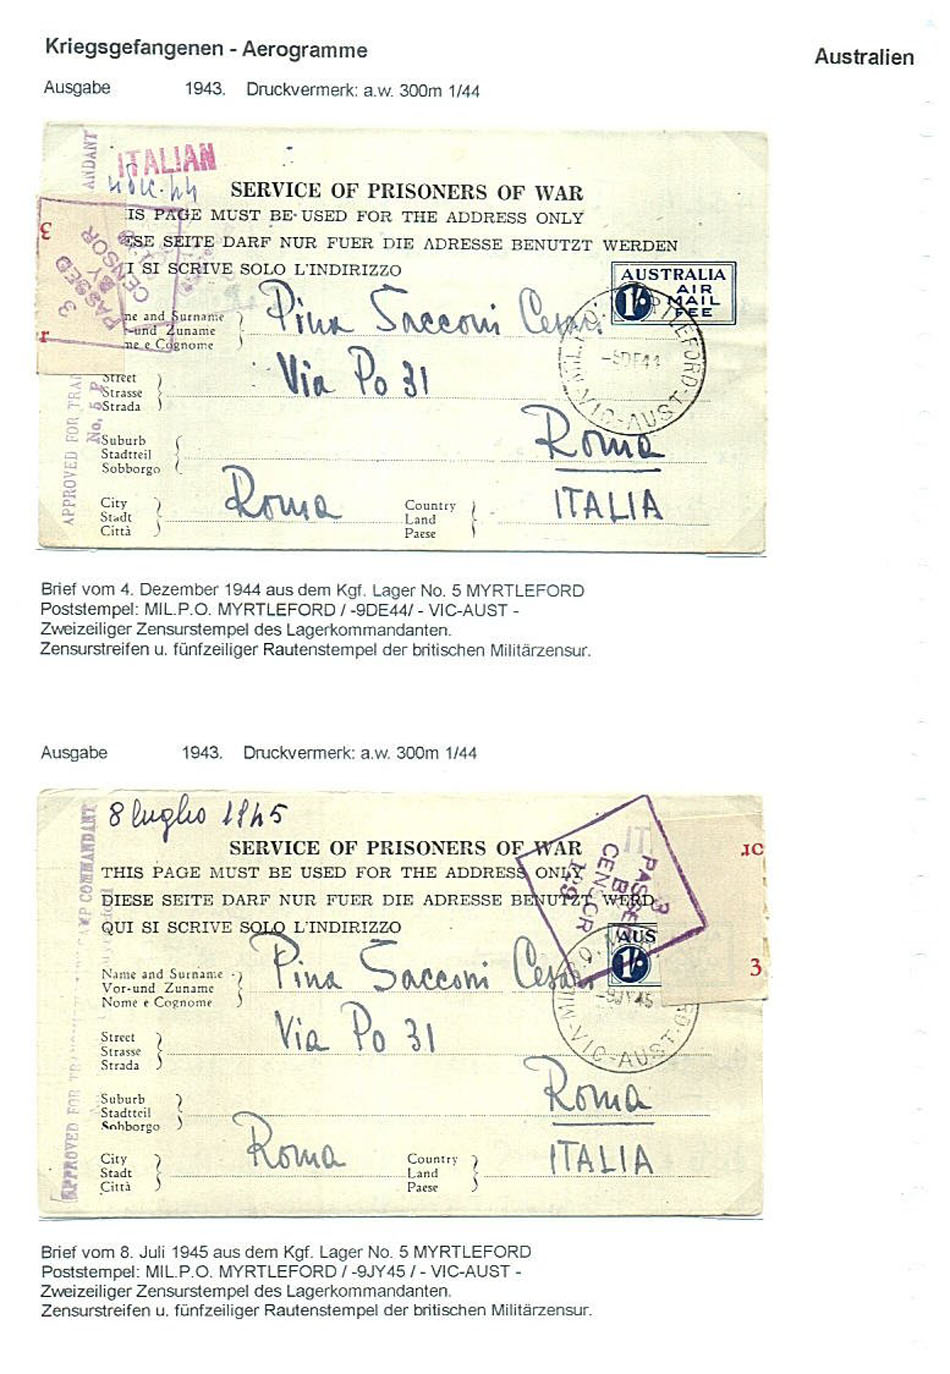 Kriegsgefangenen - Aerogramme
Australien
Ausgabe 1943. Druckvermerk: a.w. 300m 1/44
ANDANT
ITALIAN
SERVICE OF PRISONERS OF WAR
IS PAGE MUST BE USED FOR THE ADDRESS ONLY
ESE SEITE DARF NUR FUER DIE ADRESSE BENUTZT WERDEN
I SI SCRIVE SOLO L'INDIRIZZO
3
PASSED
BY
CENSOR
3
r
AUSTRALIA
AIR
MAIL
FEE
1/-
me and Surname
-und Zuname
me e Cognome
Pina Sacconi Cesari
MIL.P.O. MYRTLEFORD
-5DE44
-VIC-AUST-
Street
Strasse
Strada
Via Po 31
APPROVED FOR TRA
No. 5 P
Suburb
Stadtteil
Sobborgo
Roma
City
Stadt
Città
Roma
Country
Land
Paese
ITALIA
Brief vom 4. Dezember 1944 aus dem Kgf. Lager No. 5 MYRTLEFORD
Poststempel: MIL.P.O. MYRTLEFORD / -9DE44/ - VIC-AUST -
Zweizeiliger Zensurstempel des Lagerkommandanten.
Zensurstreifen u. fünfzeiliger Rautenstempel der britischen Militärzensur.
Ausgabe 1943. Druckvermerk: a.w. 300m 1/44
8 luglio 1945
SERVICE OF PRISONERS OF WAR
THIS PAGE MUST BE USED FOR THE ADDRESS ONLY
DIESE SEITE DARF NUR FUER DIE ADRESSE BENUTZT WERD
QUI SI SCRIVE SOLO L'INDIRIZZO
IT
3
PASSED
BY
CENSOR
199
.IC
3
AUS
1/-
Name and Surname
Vor-und Zuname
Nome e Cognome
Pina Sacconi Cesari
-9JY45
-VIC-AUST-
Street
Strasse
Strada
Via Po 31
APPROVED FOR
MP COMMANDANT
Suburb
Stadtteil
Sobborgo
Roma
City
Stadt
Città
Roma
Country
Land
Paese
ITALIA
Brief vom 8. Juli 1945 aus dem Kgf. Lager No. 5 MYRTLEFORD
Poststempel: MIL.P.O. MYRTLEFORD / -9JY45 / - VIC-AUST -
Zweizeiliger Zensurstempel des Lagerkommandanten.
Zensurstreifen u. fünfzeiliger Rautenstempel der britischen Militärzensur.